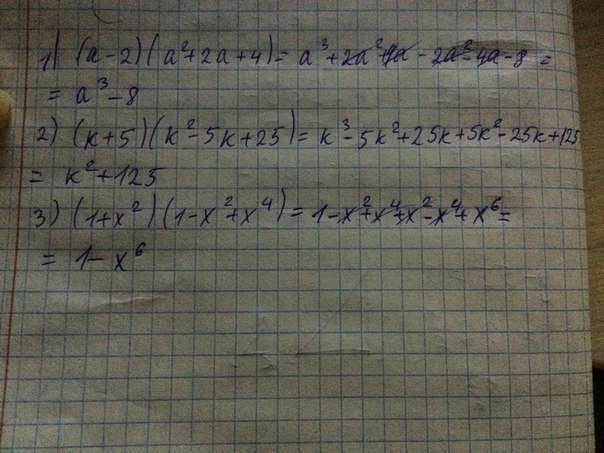 1) (a-2)(a²+2a+4)= a³+2a²+4a-2a²-4a-8=
= a³-8
2) (k+5)(k²-5k+25)= k³-5k²+25k+5k²-25k+125
= k²+125
3) (1+x²)(1-x²+x⁴)= 1-x²+x⁴+x²-x⁴+x⁶=
= 1-x⁶